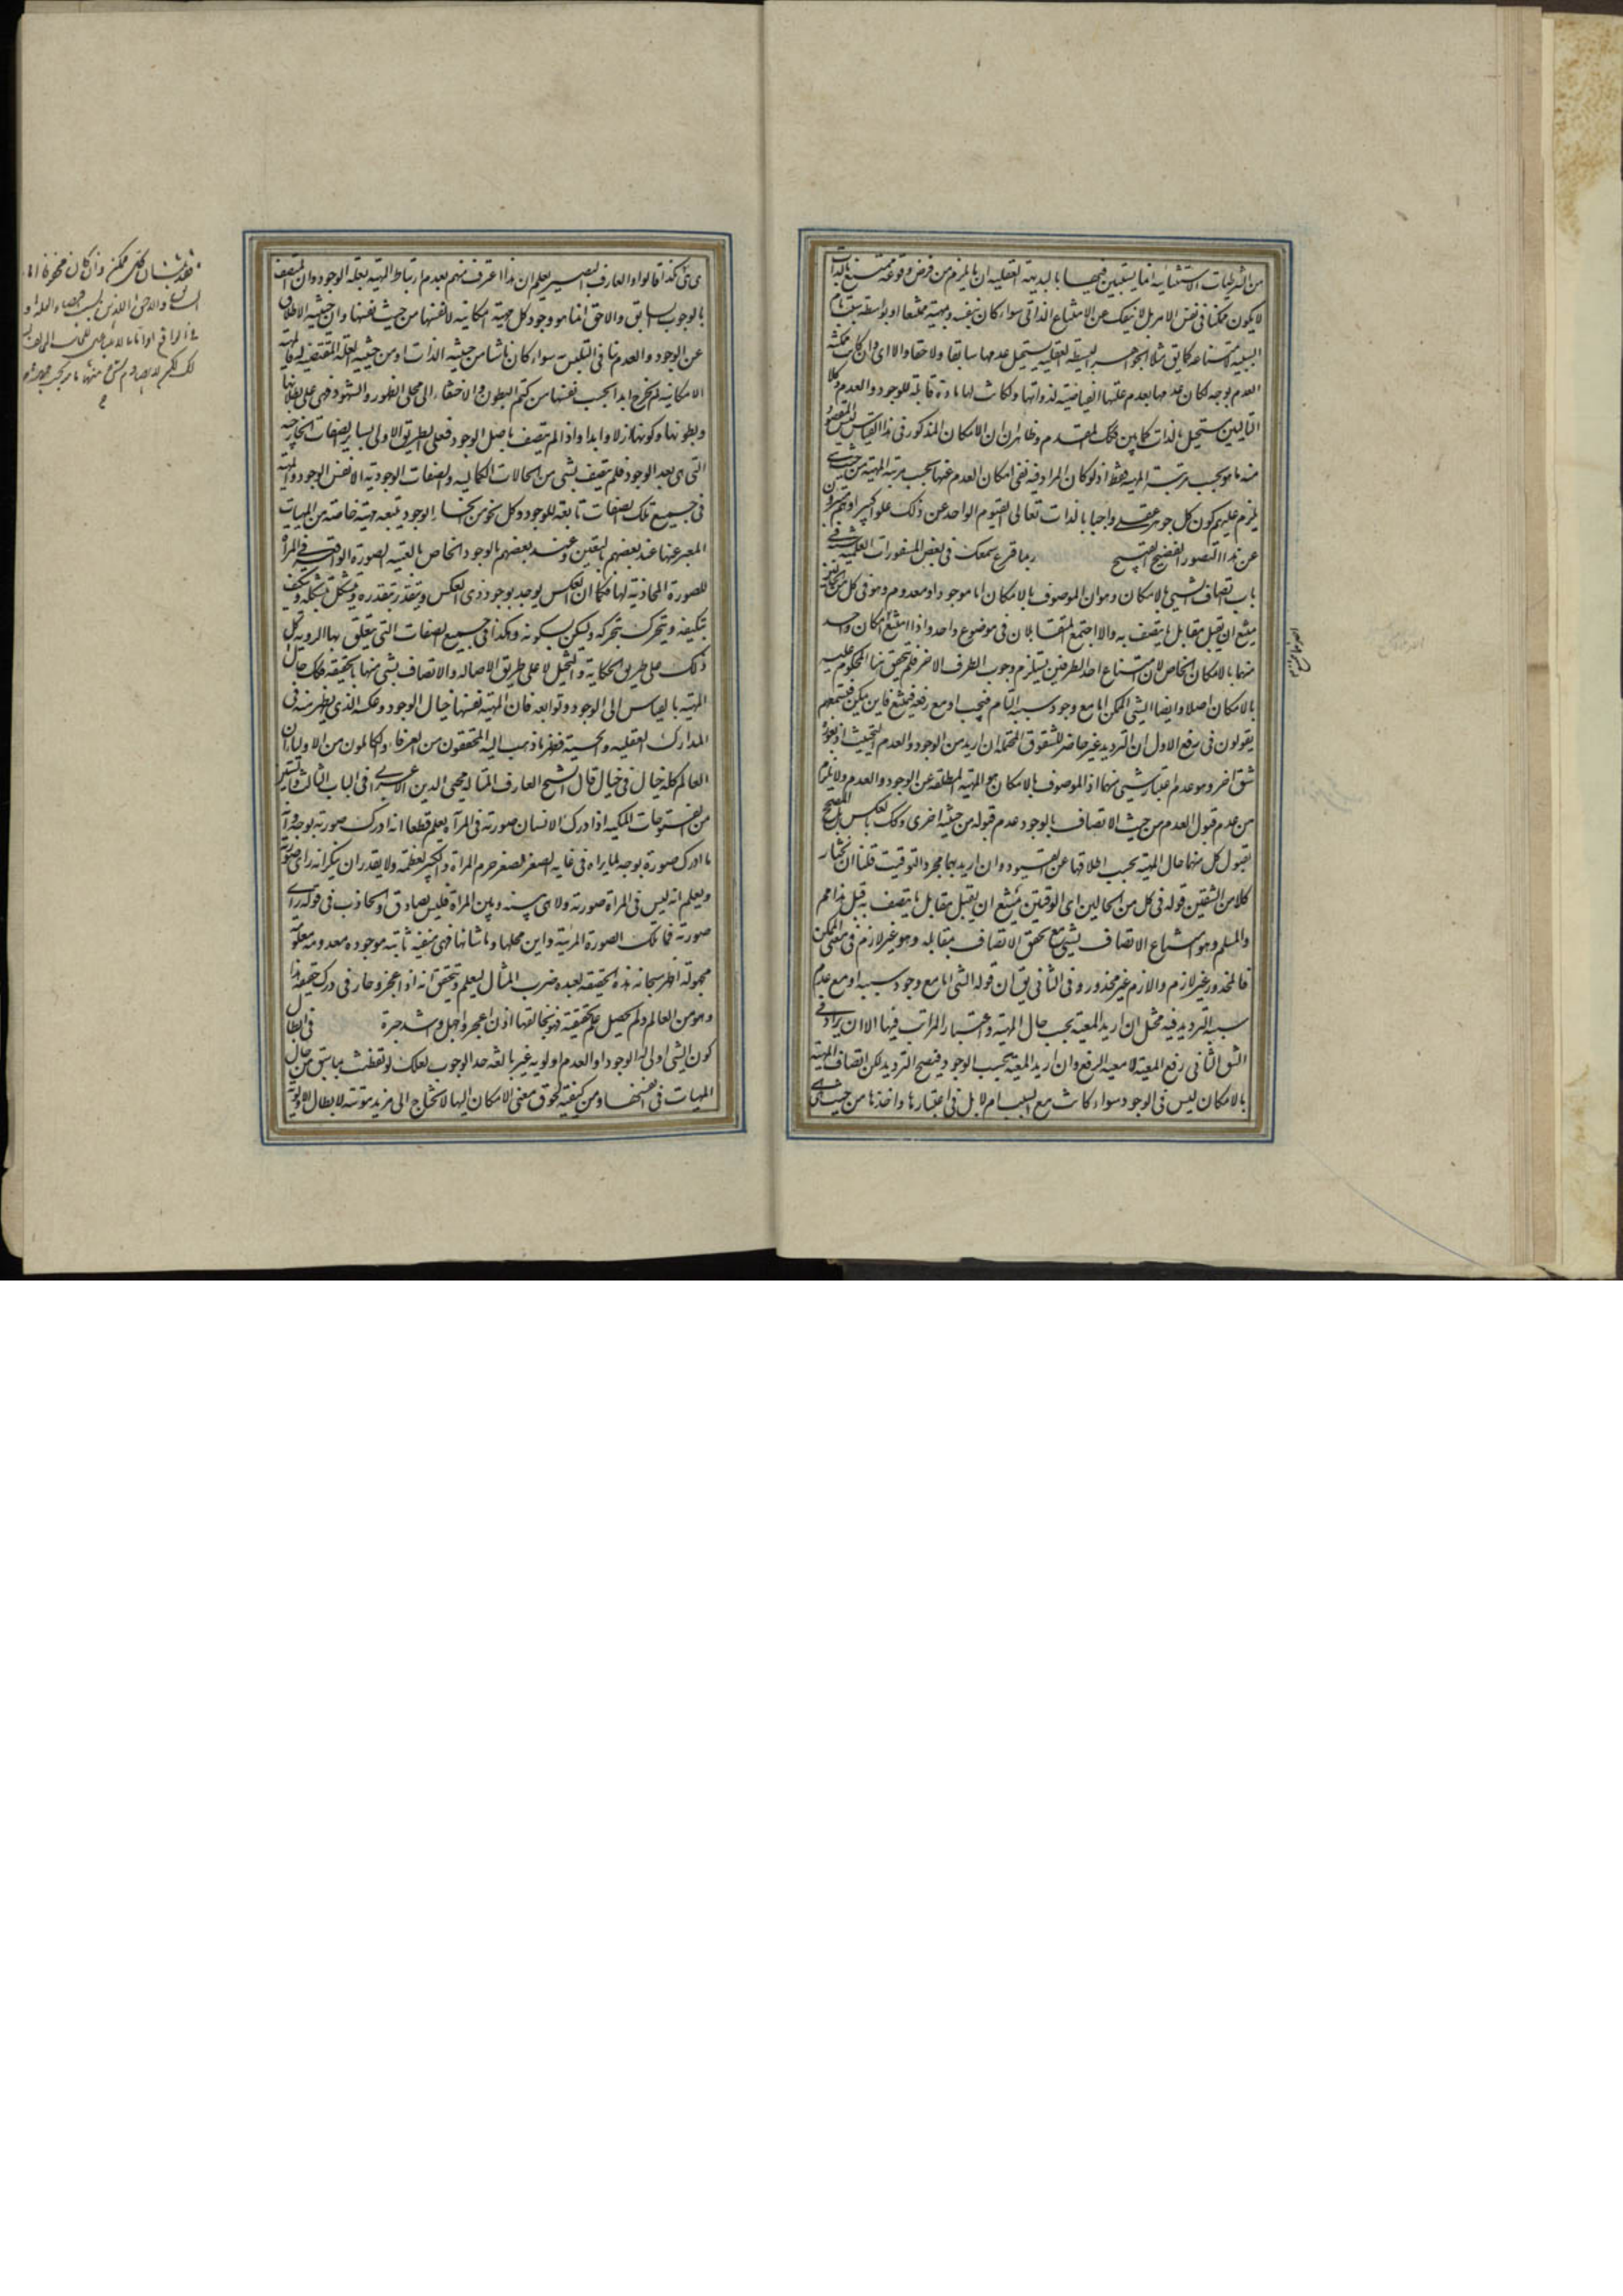 من الشرطيات الاستثنائية انما يستبين فيها بالبديهة العقلية ان ما يلزم من فرض وقوعه ممتنع بالذات
لا يكون ممكنا فى نفس الامر بل لا ينفك عن الامتناع الذاتى سواء كان بنفسه وبهيته ممتنعا او بواسطة
السببية كما يق مثلا الجوهر البسيطة العقلية يستحيل عدمها سابقا ولاحقا والا اى وان كانت ممكنة
العدم بوجه لكان عدمها بعدم علتها الفياضية لذواتها ولكانت لها مادة قابلة للوجود والعدم وكلا
التاليين مستحيل بالذات كما بين فكك المقدم وظاهر ان الامكان المذكور فى هذا القياس ليس المقصود
منه ما هو بحسب مرتبة المهية فقط اذ لو كان المراد فيه نفى امكان العدم عنها بحسب مرتبة المهية من حيث هى
يلزم عليهم كون كل جوهر عقلى واجبا بالذات تعالى القيوم الواحد عن ذلك علوا كبيرا
عن هذا التصور الفضيح القبيح ربما قرع سمعك فى بعض المسفورات العلمية فى
باب اتصاف الشىء بالامكان وهو ان الموصوف بالامكان اما موجود او معدوم وهو فى كل من الحالين
يمتنع ان يقبل مقابل ما يتصف به والا اجتمع المتقابلان فى موضوع واحد واذا امتنع امكان واحد
منهما بالامكان الخاص لان امتناع احد الطرفين يستلزم وجوب الطرف الاخر فلم يتحقق هنا المحكوم عليه
بالامكان اصلا وايضا الشىء الممكن اما مع وجود سببه التام فيجب او مع رفعه فيمتنع فاين يمكن فتسمعهم
يقولون فى رفع الاول ان الترديد غير حاصر للشقوق المحتملة ان اريد من الوجود والعدم التحيث اذ يعوزه
شق اخر وهو عدم اعتبار شىء منهما اذ الموصوف بالامكان هو المهية المطلقة عن الوجود والعدم ولا يلزم
من عدم قبول العدم من حيث الاتصاف بالوجود عدم قبوله من حيثية اخرى وكك بالعكس بل المصحح
لقبول كل منهما حال المهية بحسب اطلاقها عن القيود وان اريد بهما مجرد التوقيت قلنا ان نختار
كلا من الشقين قوله فى كل من الحالين اى الوقتين يمتنع ان يقبل مقابل ما يتصف به قبل هذا مم
والمسلم وهو امتناع الاتصاف بشىء مع تحقق الاتصاف بمقابله وهو غير لازم فى معنى الممكن
فالمحذور غير لازم واللازم غير محذور وفى الثانى يق ان قوله الشىء اما مع وجود سببه او مع عدم
سببه الترديد فيه مختل ان اريد المعية بحسب حال المهية واعتبار المراتب فيها الا ان يراد فى
الشق الثانى رفع المعية لا معية الرفع وان اريد المعية بحسب الوجود فيصح الترديد لكن اتصاف المهية
بالامكان ليس فى الوجود سواء كانت مع السبب ام لا بل فى اعتبارها واخذها من حيث هى
هى هى كذا قالوا والعارف البصير يعلم ان هذا اعترف منهم بعدم ارتباط المهية بعلة الوجود وان المتصف
بالوجوب السابق واللاحق انما هو وجود كل مهية امكانية لا نفسها من حيث نفسها وان حيثية الاطلاق
عن الوجود والعدم تنافى التلبس به سواء كان ناشئا من حيثية الذات او من حيثية العلة المقتضية له فالمهية
الامكانية لم تخرج ابدا بحسب نفسها من كتم البطون والاختفاء الى مجلى الظهور والشهود فهى على بطلانها
وبطونها وكونها ازلا وابدا واذا لم يتصف باصل الوجود فعلى الطريق الاولى بسائر الصفات الخارجية
التى هى بعد الوجود فلم يتصف بشىء من الحالات الكمالية والصفات الوجودية الا نفس الوجود والمهية
فى جميع تلك الصفات تابعة للوجود وكل نحو من انحاء الوجود يتبعه مهية خاصة من المهيات
المعبر عنها عند بعضهم بالتعين وعند بعضهم بالوجود الخاص بالتبعية الصورة الواقعة فى المرآة
للصورة المحاذية لها فكما ان العكس يوجد بوجود ذى العكس ويتقدر بتقدره ويتشكل بتشكله ويتكيف
بتكيفه ويتحرك بتحركه ويسكن بسكونه وهكذا فى جميع الصفات التى يتعلق بها الرؤية كل
ذلك على طريق الحكاية والتخيل لا على طريق الاصالة والاتصاف بشىء منها بالحقيقة فكك حال
المهية بالقياس الى الوجود وتوابعه فان المهية نفسها خيال الوجود وعكسه الذى يظهر منه فى
المدارك العقلية والحسية فظهر ما ذهب اليه المحققون من العرفاء والكاملون من الاولياء ان
العالم كله خيال فى خيال قال الشيخ العارف المتاله محيى الدين الاعرابى فى الباب الثالث والستين
من الفتوحات المكية اذا ادرك الانسان صورته فى المرآة يعلم قطعا انه ادرك صورته بوجه وانه
ما ادرك صورة بوجه لما يراه فى غاية الصغر لصغر جرم المرآة والكبر لعظمه ولا يقدر ان ينكر انه راى صورته
ويعلم انه ليس فى المرآة صورته ولا هى بينه وبين المرآة فليس بصادق ولا كاذب فى قوله راى
صورته فما تلك الصورة المرئية واين محلها وما شانها فهى منفية ثابتة موجودة معدومة معلومة
مجهولة اظهر سبحانه هذه الحقيقة لعبده ضرب المثال ليعلم ويتحقق انه اذا عجز وحار فى درك حقيقة هذا
وهو من العالم ولم يحصل علم تحقيقه فهو بخالقها اذن اعجز واجهل واشد حيرة فى ابطال
كون الشىء اولى له الوجود او العدم اولوية غير بالغة حد الوجوب لعلك لو تفطنت بما سبق من حال
المهيات فى انفسها ومن كيفية لحوق معنى الامكان اليها لا تحتاج الى مزيد مئونة لابطال الاولوية